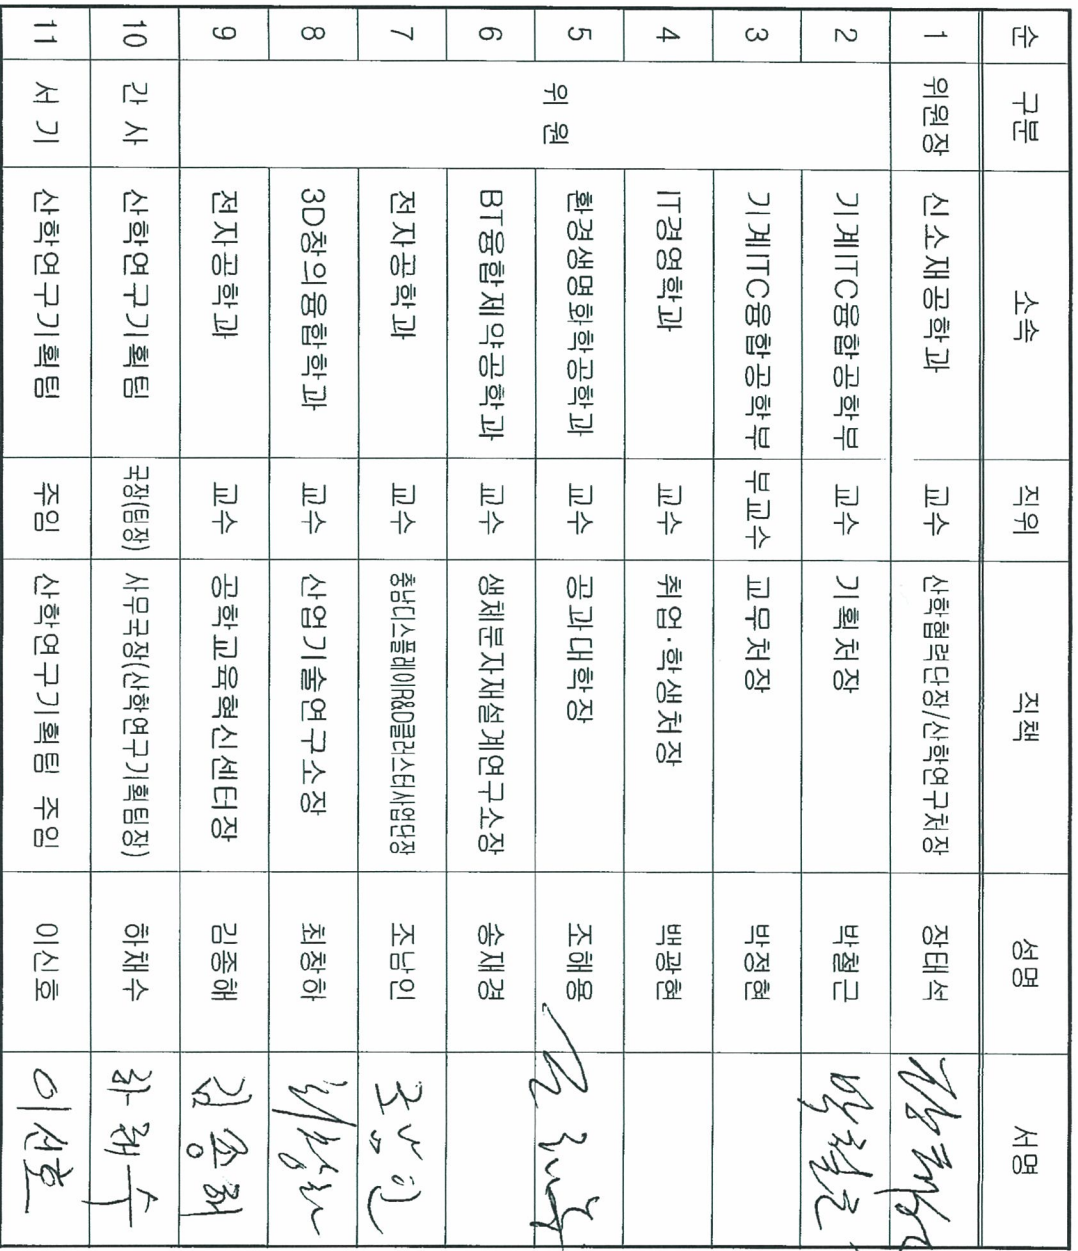 순 구분 소속 직위 직책 성명 서명
1 위원장 신소재공학과 교수 산학협력단장/산학연구처장 장태석
2 위원 기계ITC융합공학부 교수 기획처장 박철근 박철근
3 기계ITC융합공학부 부교수 교무처장 박정현
4 IT경영학과 교수 취업·학생처장 백광현
5 환경생명화학공학과 교수 공과대학장 조해용
6 BT융합제약공학과 교수 생체분자재설계연구소장 송재경
7 전자공학과 교수 충남디스플레이R&D클러스터사업단장 조남인 조남인
8 3D창의융합학과 교수 산업기술연구소장 최창하
9 전자공학과 교수 공학교육혁신센터장 김종해 김종해
10 간사 산학연구기획팀 국장(팀장) 사무국장(산학연구기획팀장) 하채수 하채수
11 서기 산학연구기획팀 주임 산학연구기획팀 주임 이신호 이신호